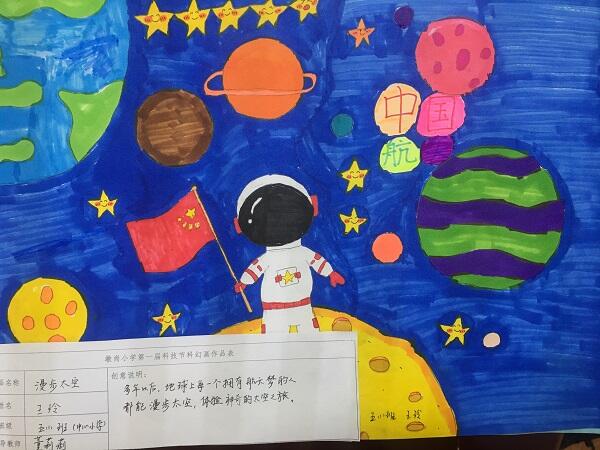 中国
航
墩尚小学第一届科技节科幻画作品表
品名称 漫步太空
创意说明：
多年以后，地球上每一个拥有航天梦的人
都能漫步太空，体验神奇的太空之旅。
姓名 王玲
班级 五(1)班(中心小学)
导教师 董莉莉
五(1)班 王玲